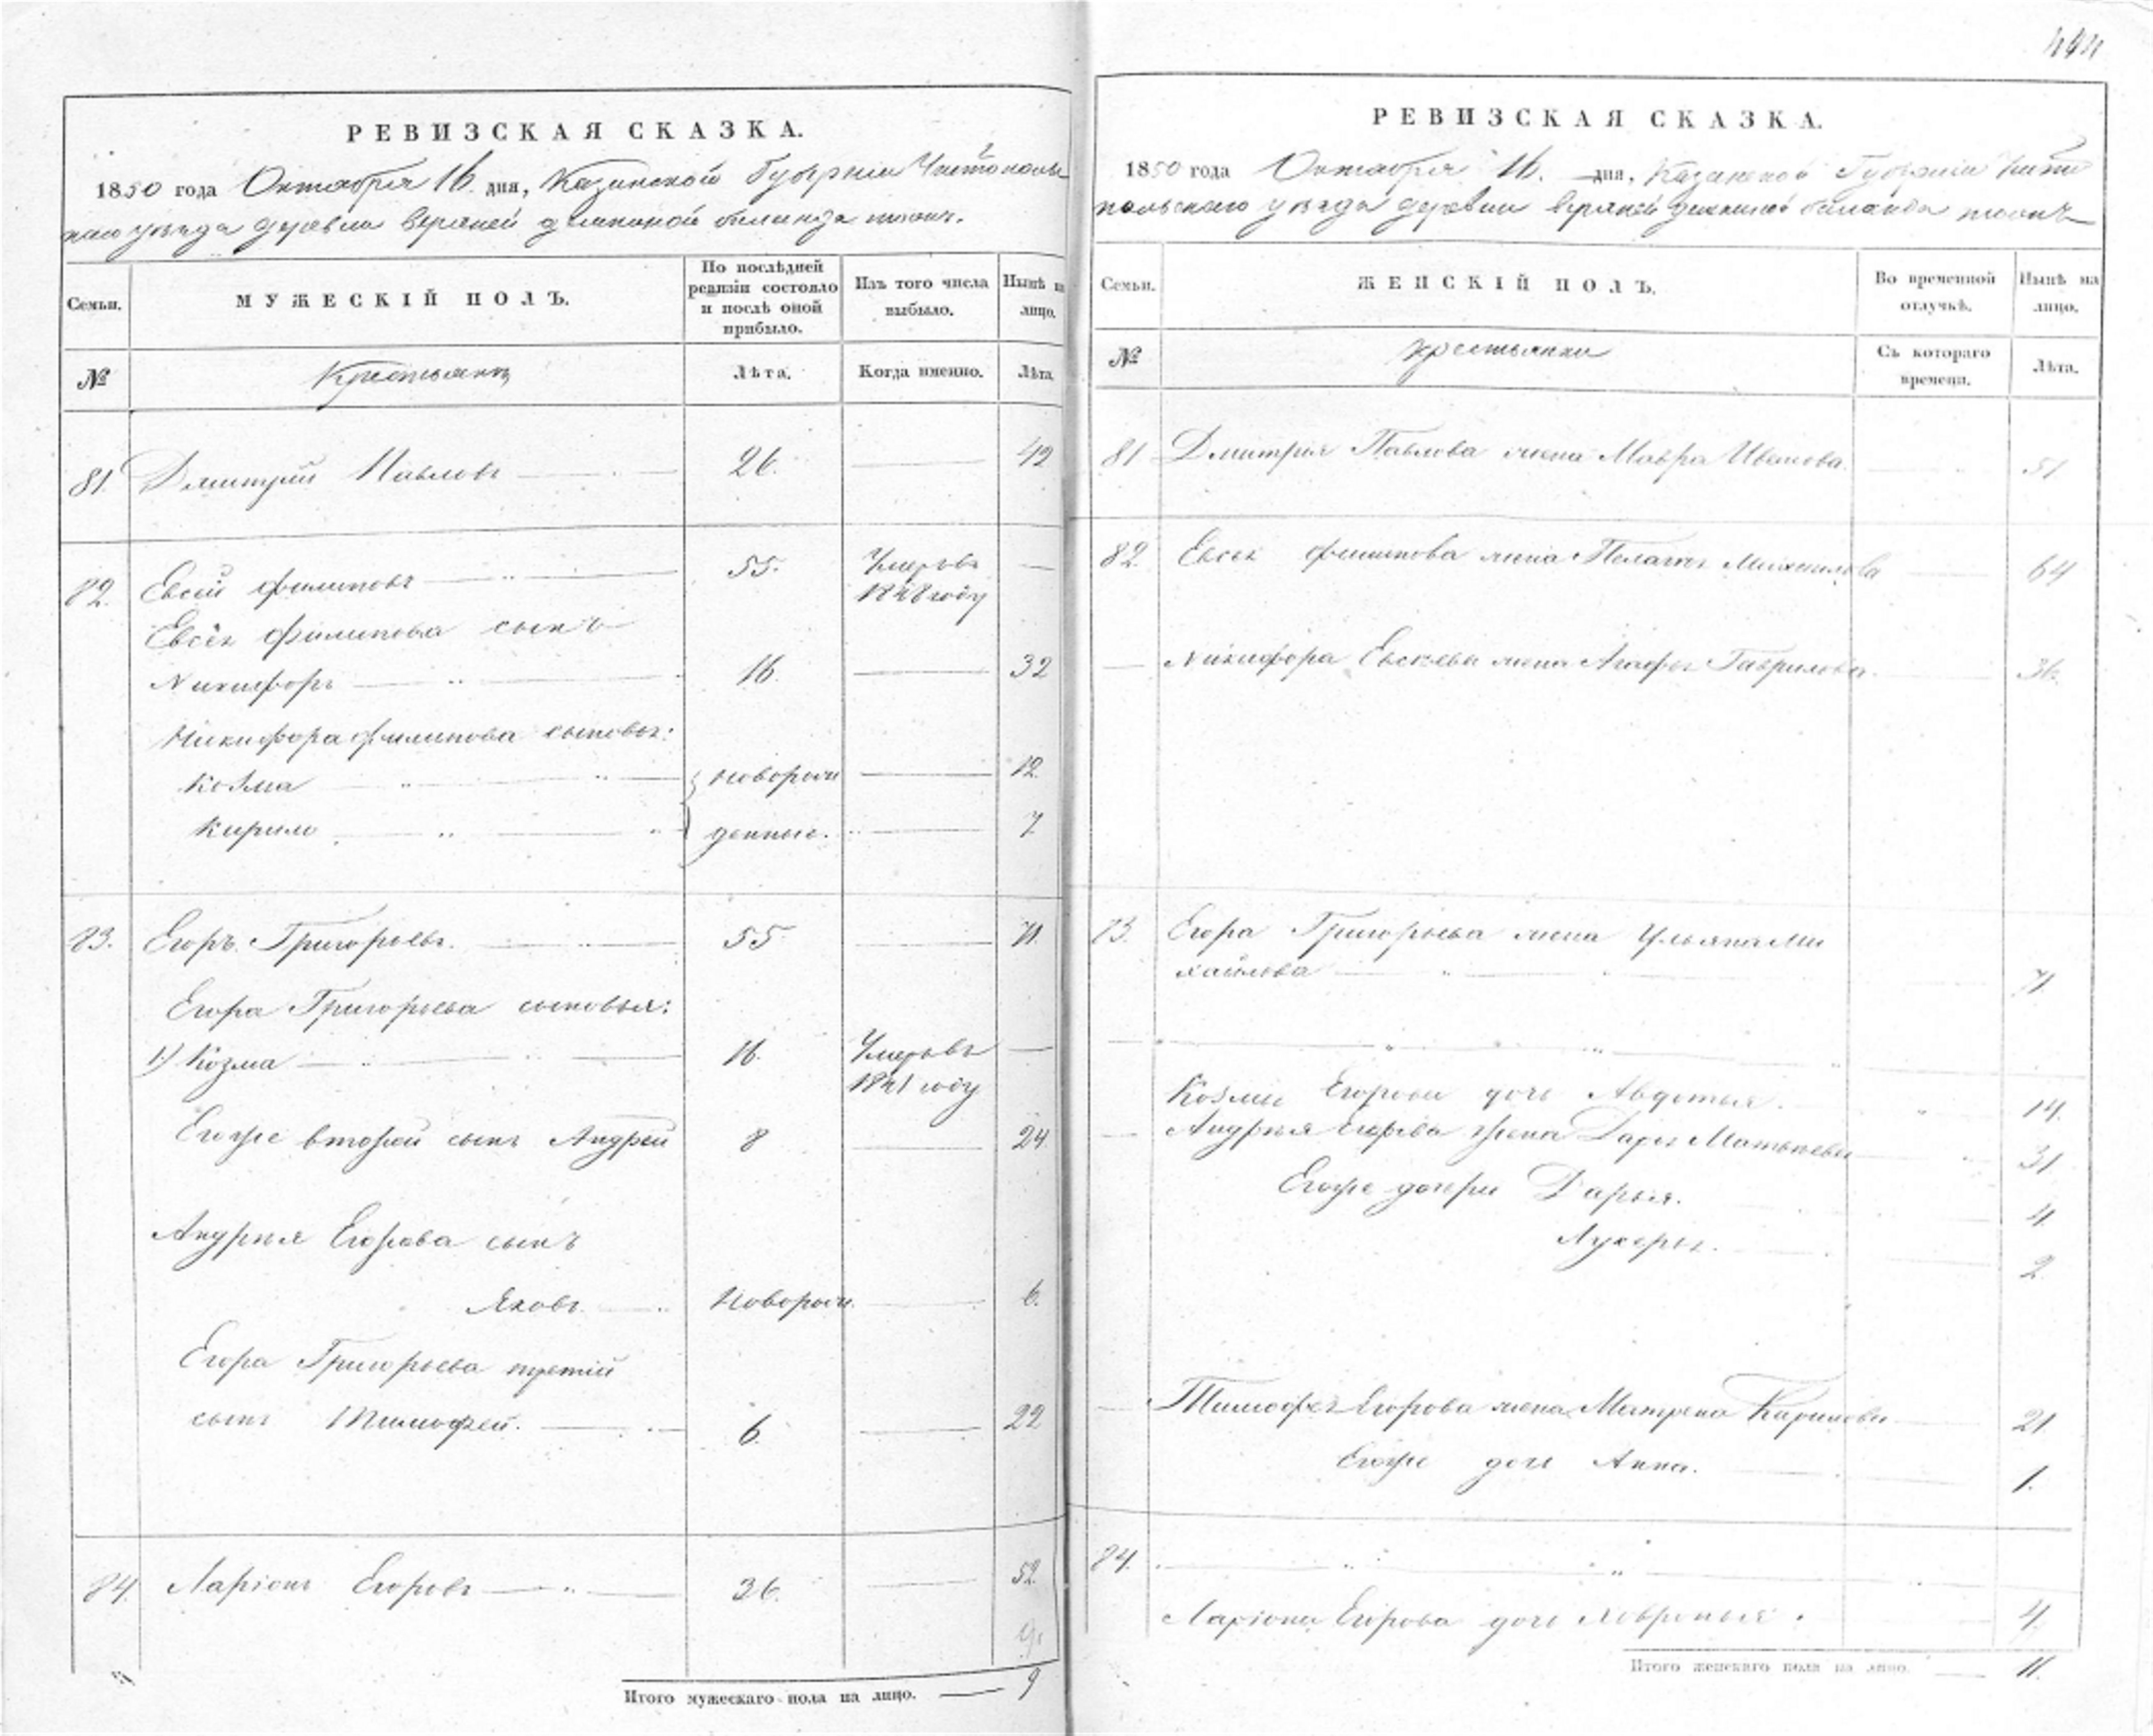 444
РЕВИЗСКАЯ СКАЗКА.
1850 года Октября 16 дня, Казанской Губерніи Чистополь
скаго уѣзда деревни Верхней
Семьи.
МУЖЕСКІЙ ПОЛЪ.
По послѣдней ревизіи состояло и послѣ оной прибыло.
Изъ того числа выбыло.
Нынѣ на лицо.
№
Крестьяне
Лѣта.
Когда именно.
Лѣта
81. Дмитрий Павловъ 26. 42
82. Евсей Филиповъ 55. Умеръ въ
1848 году
Евсея Филипова сынъ
Никифоръ 16 32
Никифора Филипова сыновья:
Козма новорож 12.
Кирило денные. 7
83. Егоръ Григорьевъ. 55 71.
Егора Григорьева сыновья:
1.) Козма 16. Умеръ въ
1841 году
Егоже второй сынъ Андрей 8 24
Андрея Егорова сынъ
Яковъ Новорож. 6.
Егора Григорьева третій
сынъ Тимофей. 6 22
84 Ларіонъ Егоровъ 36. 52
9
Итого мужескаго пола на лицо. 9
РЕВИЗСКАЯ СКАЗКА.
1850 года Октября 16. дня, Казанской Губерніи Чисто
польскаго уѣзда деревни Верхней
Семьи.
ЖЕНСКІЙ ПОЛЪ.
Во временной отлучкѣ.
Нынѣ на лицо.
№
Крестьянки
Съ котораго времени.
Лѣта.
81 Дмитрія Павлова жена Мавра Иванова. 51
82. Евсея Филипова жена Пелагея Михаилова 64
Никифора Евсеева жена Агафья Гаврилова. 36.
83. Егора Григорьева жена Ульяна Ми
хайлова 71
Козмы Егорова дочь Авдотья. 14.
Андрея Егорова жена Дарья Матвеева 31
Егоже дочери Дарья. 4
Лукерья. 2
Тимофея Егорова жена Матрена Кирилова 21
Егоже дочь Анна. 1.
84.
Ларіона Егорова дочь 4.
Итого женскаго пола на лицо. 11.